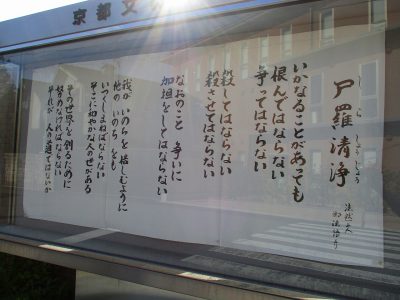 京都文
尸羅清浄
しらしょうじょう
法然上人
御法語
いかなることがあっても
恨んではならない
争ってはならない
殺してはならない
殺させてはならない
なおのこと 争いに
加担をしてはならない
我が いのちを 惜しむように
他の いのちをも
いつくしまねばならない
そこに初めて人の世がある
その世界を創るために
努めなければならない
それが 人の道ではないか